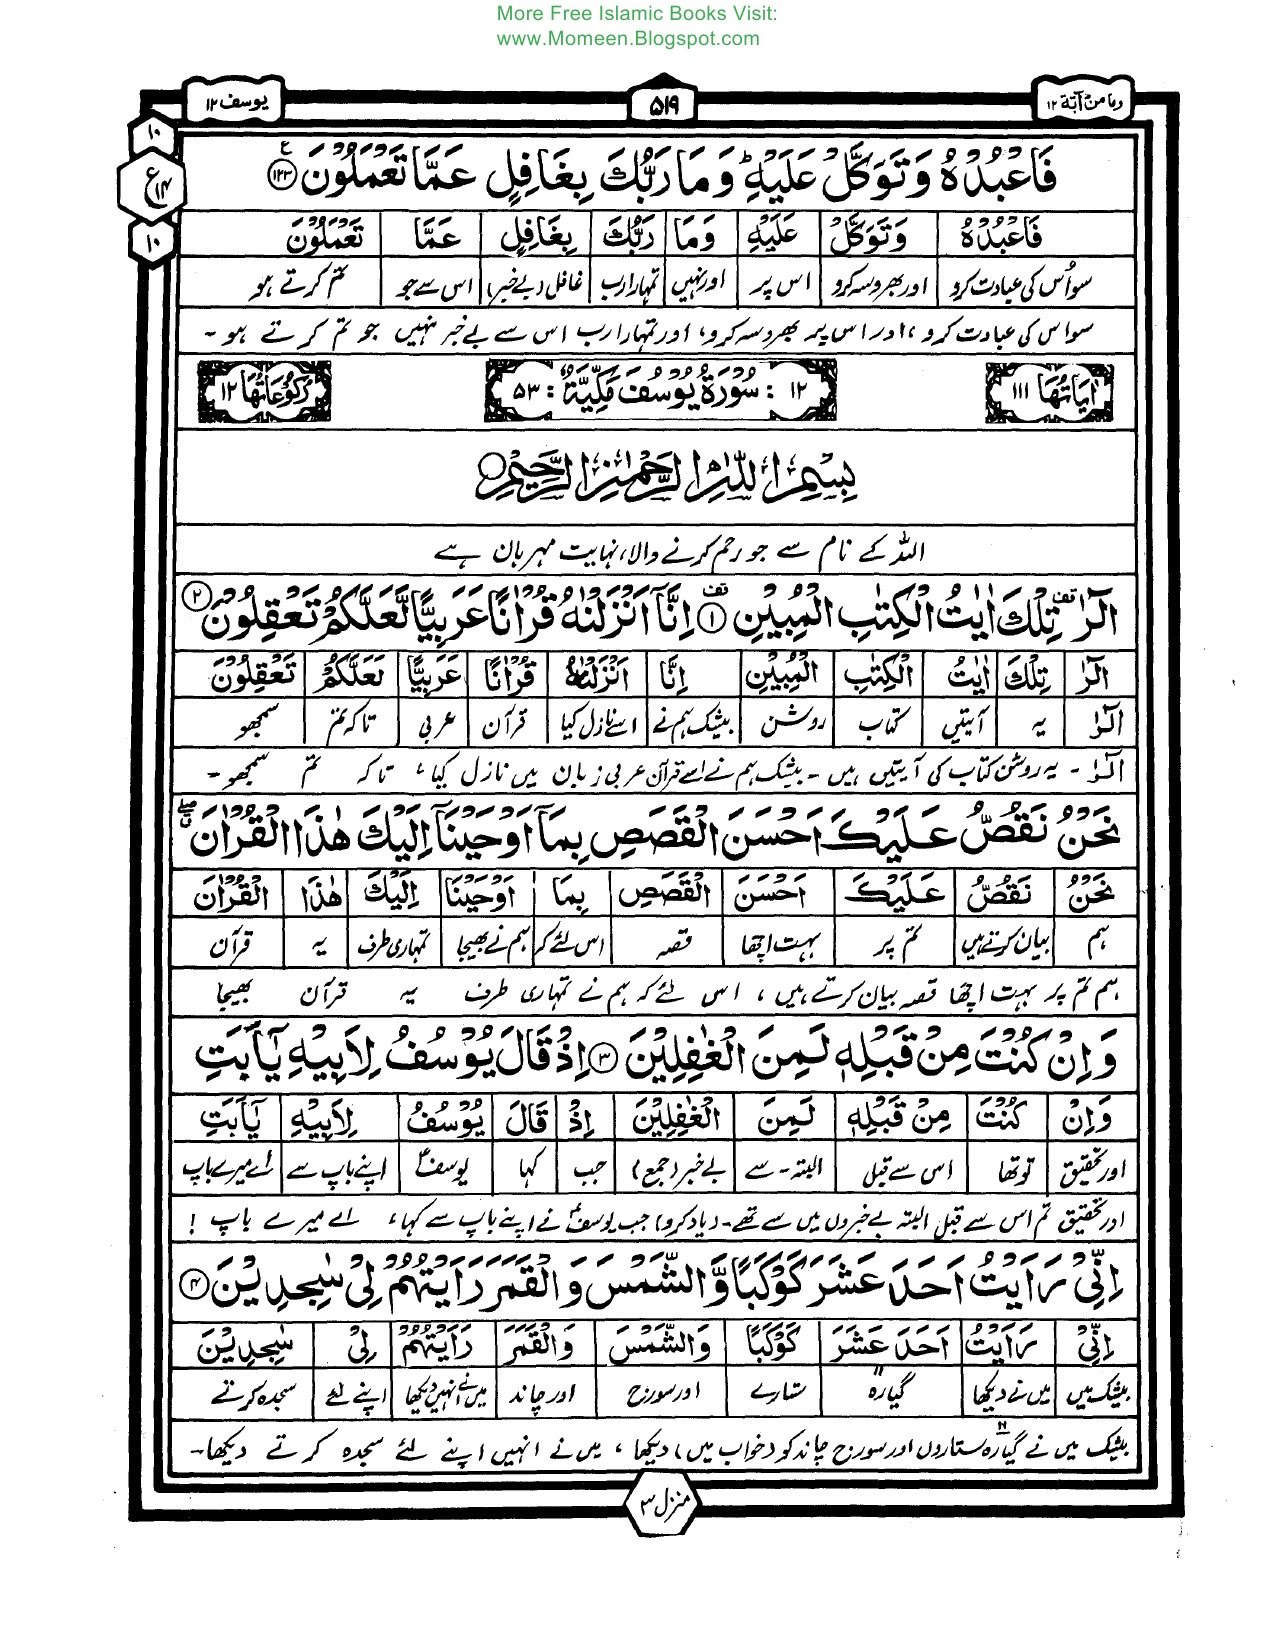 More Free Islamic Books Visit:
www.Momeen.Blogspot.com
ومامن دآبة ۱۲ ۵۱۹ یوسف ۱۲
۱۰
ع ۱۴
۱۰
فَاعْبُدْهُ وَتَوَكَّلْ عَلَيْهِ ؕ وَمَا رَبُّكَ بِغَافِلٍ عَمَّا تَعْمَلُوْنَ ۱۲۳ ع
فَاعْبُدْهُ وَتَوَكَّلْ عَلَيْهِ وَمَا رَبُّكَ بِغَافِلٍ عَمَّا تَعْمَلُوْنَ
سو اُس کی عبادت کرو اور بھروسہ کرو اس پر اور نہیں تمہارا رب غافل (بے خبر) اس سے جو تم کرتے ہو
سو اس کی عبادت کرو، اور اس پر بھروسہ کرو، اور تمہارا رب اس سے بے خبر نہیں جو تم کرتے ہو -
اٰيَاتُهَا ۱۱۱ ۱۲ : سُوْرَةُ يُوْسُفَ مَكِّيَّةٌ : ۵۳ رُكُوْعَاتُهَا ۱۲
بِسْمِ اللّٰهِ الرَّحْمٰنِ الرَّحِيْمِ
اللہ کے نام سے جو رحم کرنے والا، نہایت مہربان ہے
الٓرٰ قف تِلْكَ اٰيٰتُ الْكِتٰبِ الْمُبِيْنِ ۱ قف اِنَّآ اَنْزَلْنٰهُ قُرْاٰنًا عَرَبِيًّا لَّعَلَّكُمْ تَعْقِلُوْنَ ۲
الٓرٰ تِلْكَ اٰيٰتُ الْكِتٰبِ الْمُبِيْنِ اِنَّا اَنْزَلْنٰهُ قُرْاٰنًا عَرَبِيًّا لَعَلَّكُمْ تَعْقِلُوْنَ
الٓرٰ یہ آیتیں کتاب روشن بیشک ہم نے اسے نازل کیا قرآن عربی تاکہ تم سمجھو
الٓرٰ - یہ روشن کتاب کی آیتیں ہیں - بیشک ہم نے اسے قرآن عربی زبان میں نازل کیا، تاکہ تم سمجھو -
نَحْنُ نَقُصُّ عَلَيْكَ اَحْسَنَ الْقَصَصِ بِمَآ اَوْحَيْنَآ اِلَيْكَ هٰذَا الْقُرْاٰنَ
نَحْنُ نَقُصُّ عَلَيْكَ اَحْسَنَ الْقَصَصِ بِمَا اَوْحَيْنَا اِلَيْكَ هٰذَا الْقُرْاٰنَ
ہم بیان کرتے ہیں تم پر بہت اچھا قصہ اس لئے کہ ہم نے بھیجا تمہاری طرف یہ قرآن
ہم تم پر بہت اچھا قصہ بیان کرتے ہیں، اس لئے کہ ہم نے تمہاری طرف یہ قرآن بھیجا
وَاِنْ كُنْتَ مِنْ قَبْلِهٖ لَمِنَ الْغٰفِلِيْنَ ۳ اِذْ قَالَ يُوْسُفُ لِاَبِيْهِ يٰٓاَبَتِ
وَاِنْ كُنْتَ مِنْ قَبْلِهٖ لَمِنَ الْغٰفِلِيْنَ اِذْ قَالَ يُوْسُفُ لِاَبِيْهِ يٰٓاَبَتِ
اور تحقیق تو تھا اس سے قبل البتہ - سے بے خبر (جمع) جب کہا یوسفؑ اپنے باپ سے اے میرے باپ
اور تحقیق تم اس سے قبل البتہ بے خبروں میں سے تھے - (یاد کرو) جب یوسفؑ نے اپنے باپ سے کہا، اے میرے باپ !
اِنِّىْ رَاَيْتُ اَحَدَ عَشَرَ كَوْكَبًا وَّالشَّمْسَ وَالْقَمَرَ رَاَيْتُهُمْ لِىْ سٰجِدِيْنَ ۴
اِنِّىْ رَاَيْتُ اَحَدَ عَشَرَ كَوْكَبًا وَالشَّمْسَ وَالْقَمَرَ رَاَيْتُهُمْ لِىْ سٰجِدِيْنَ
بیشک میں میں نے دیکھا گیارہ ۱۱ ستارے اور سورج اور چاند میں نے انہیں دیکھا اپنے لئے سجدہ کرتے
بیشک میں نے گیارہ ۱۱ ستاروں اور سورج چاند کو (خواب میں) دیکھا، میں نے انہیں اپنے لئے سجدہ کرتے دیکھا -
منزل ۳